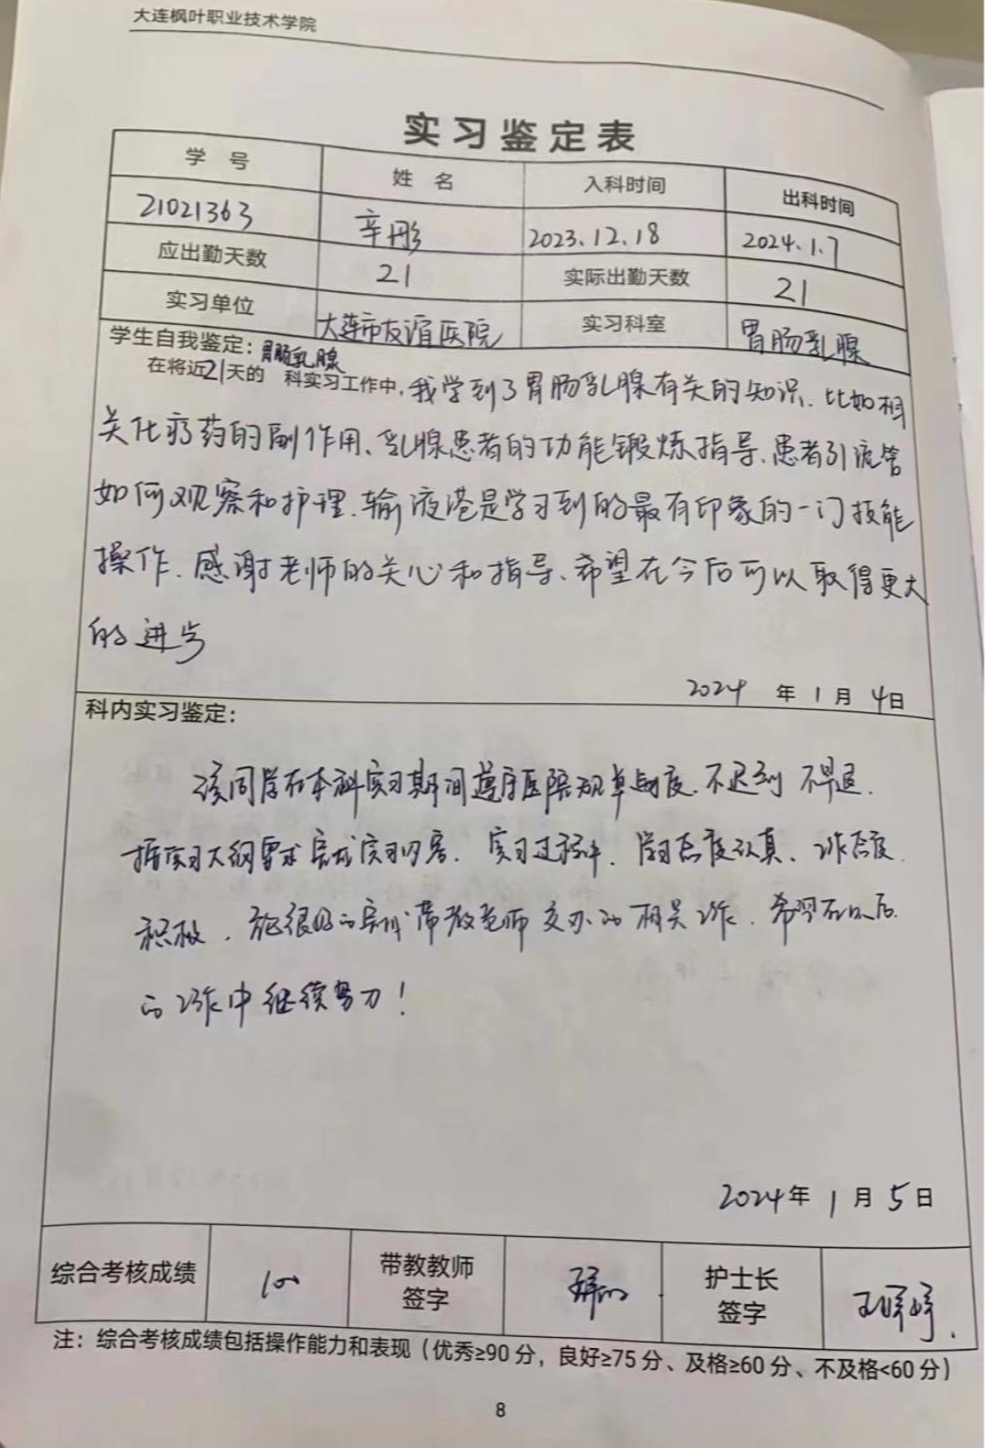 大连枫叶职业技术学院
实习鉴定表
学 号 姓 名 入科时间 出科时间
21021363 辛彤 2023.12.18 2024.1.7
应出勤天数 21 实际出勤天数 21
实习单位 大连市友谊医院 实习科室 胃肠乳腺
学生自我鉴定：
在将近21天的胃肠乳腺科实习工作中,我学到了胃肠乳腺有关的知识、比如相
关化疗药的副作用、乳腺患者的功能锻炼指导、患者引流管
如何观察和护理.输液港是学习到的最有印象的一门技能
操作、感谢老师的关心和指导、希望在今后可以取得更大
的进步
2024 年 1 月 4 日
科内实习鉴定：
该同学在本科实习期间遵守医院规章制度.不迟到 不早退.
按实习大纲要求完成实习内容.实习过程中.学习态度认真、工作态度
积极.能很好的完成带教老师交办的相关工作.希望在以后
的工作中继续努力！
2024 年 1 月 5 日
综合考核成绩 100 带教教师签字 护士长签字
注：综合考核成绩包括操作能力和表现（优秀≥90 分，良好≥75 分、及格≥60 分、不及格<60 分）
8